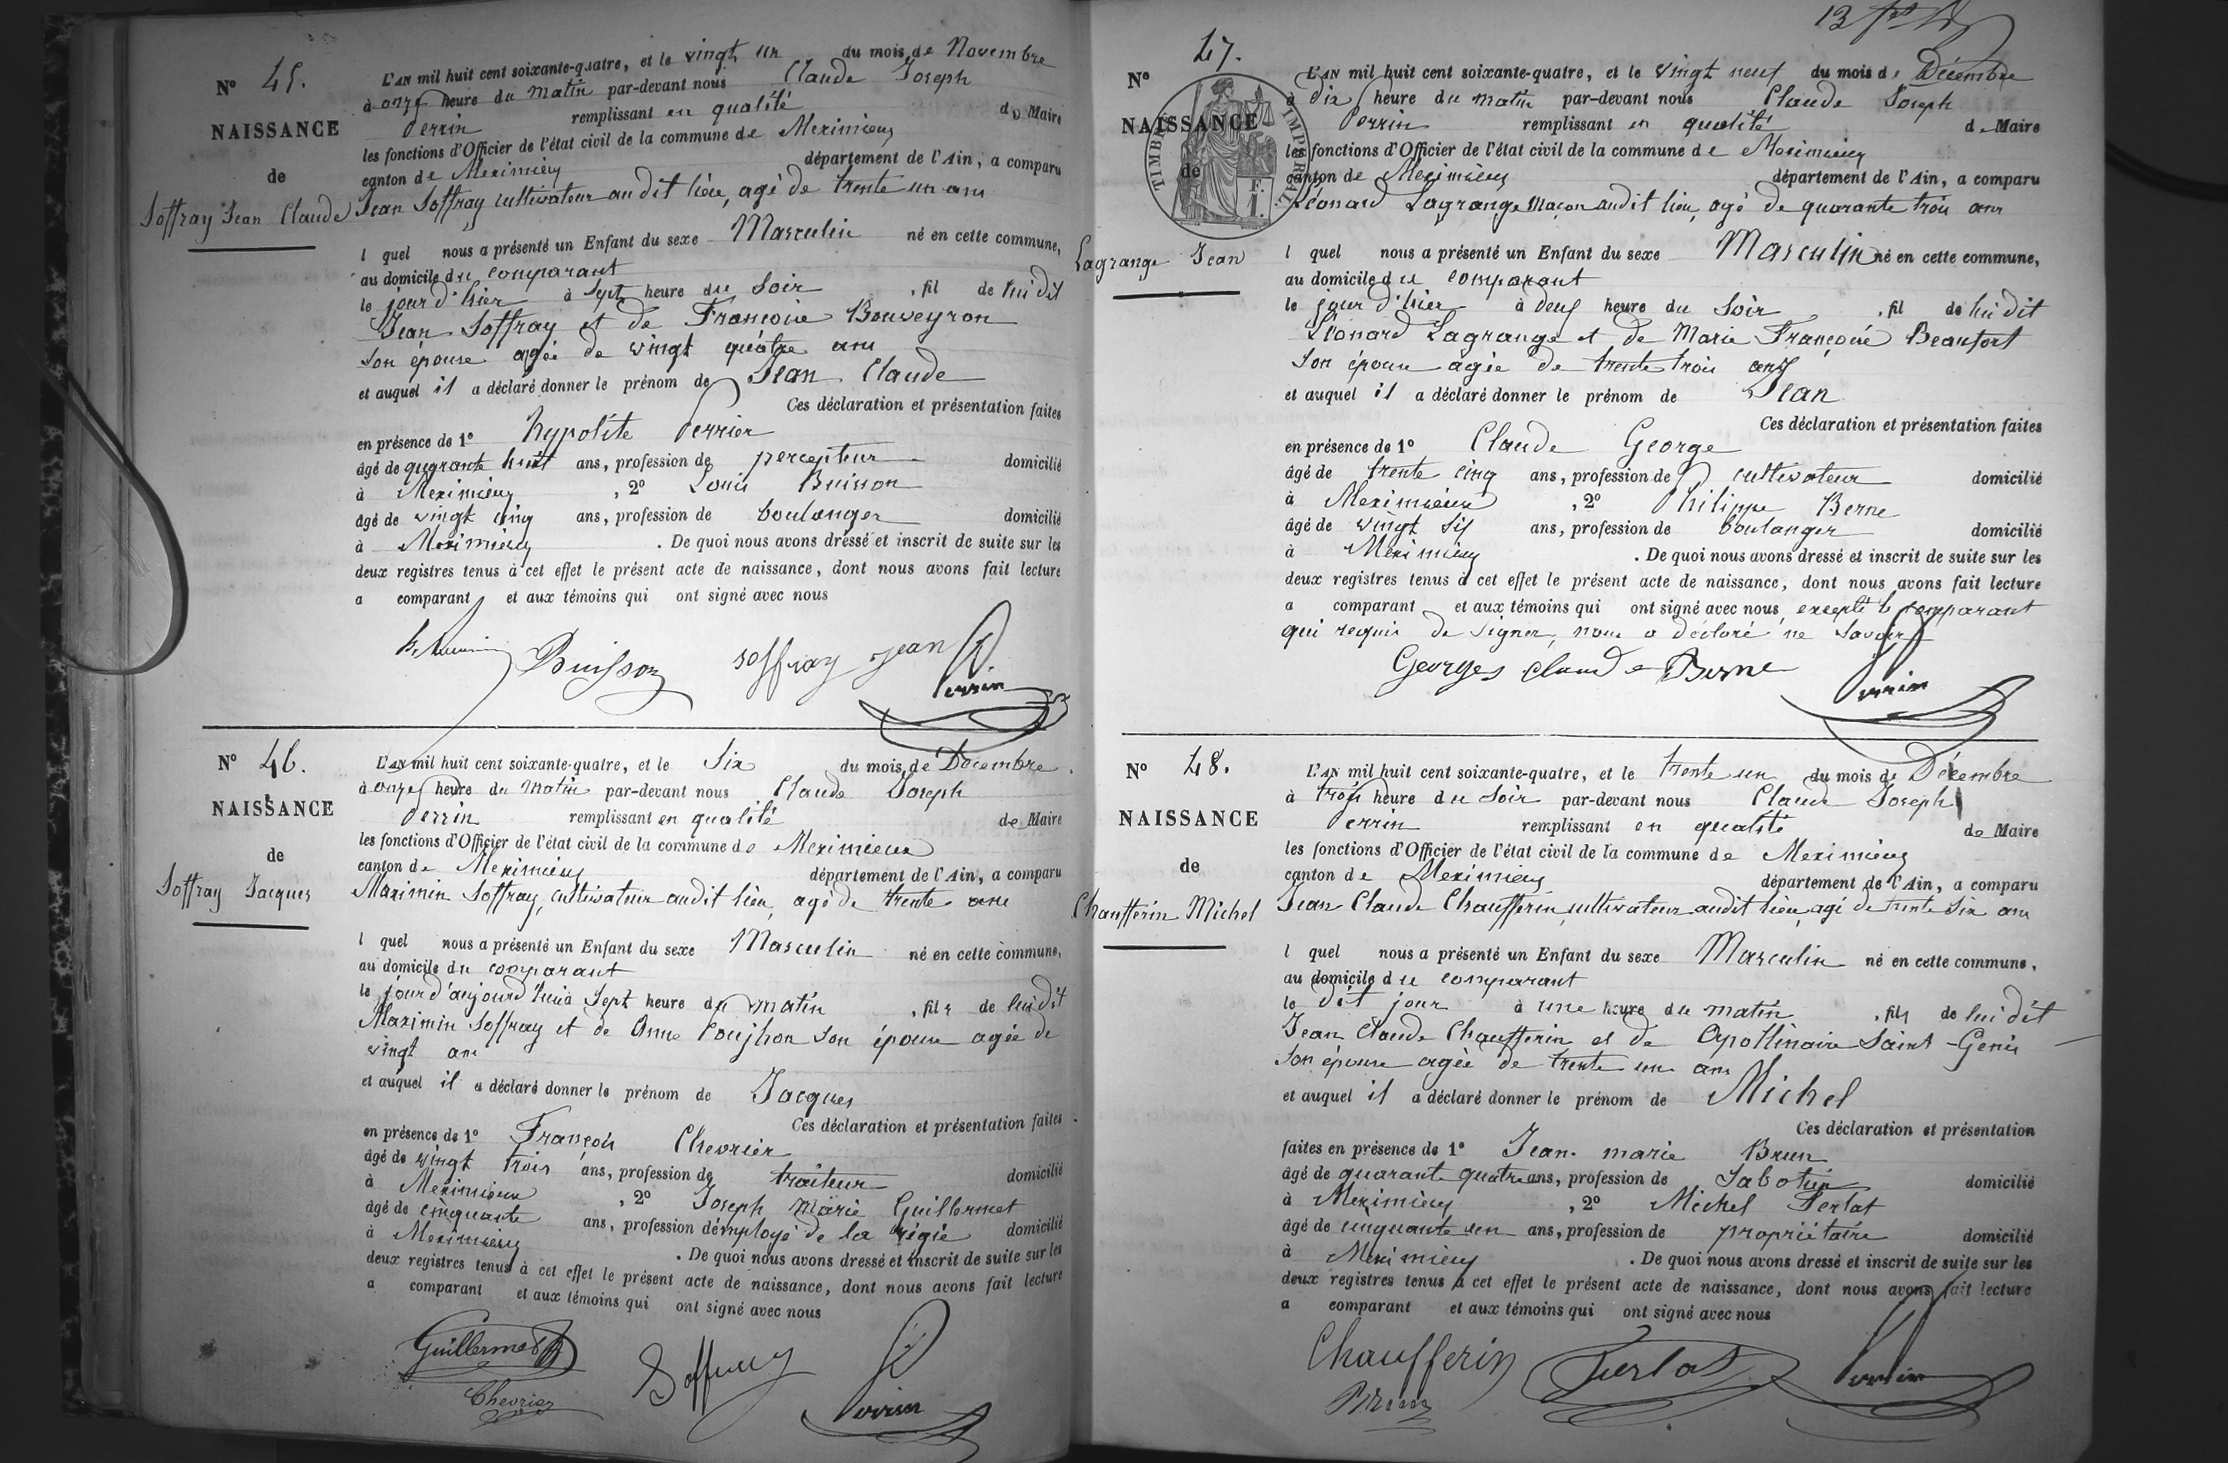 Nº 45.
NAISSANCE
de
Soffray Jean Claude
L'AN mil huit cent soixante-quatre, et le vingt un du mois de Novembre
à onze heure du matin par-devant nous Claude Joseph
Perrin remplissant en qualité de Maire
les fonctions d'Officier de l'état civil de la commune de Meximieux
canton de Meximieux département de l'Ain, a comparu
Jean Soffray cultivateur audit lieu, agé de trente un ans
l quel nous a présenté un Enfant du sexe Masculin né en cette commune,
au domicile du comparant
le jour d'hier à sept heure du soir , fil de lui dit
Jean Soffray et de Françoise Bouveyron
son épouse agée de vingt quatre ans
et auquel il a déclaré donner le prénom de Jean Claude
Ces déclaration et présentation faites
en présence de 1º hypolite Perrier
âgé de quarante huit ans, profession de percepteur domicilié
à Meximieux , 2º Louis Buisson
âgé de vingt cinq ans, profession de boulanger domicilié
à Meximieux . De quoi nous avons dressé et inscrit de suite sur les
deux registres tenus à cet effet le présent acte de naissance, dont nous avons fait lecture
a comparant et aux témoins qui ont signé avec nous
Buisson soffray jean Perrin
Nº 46.
NAISSANCE
de
Soffray Jacques
L'AN mil huit cent soixante-quatre, et le six du mois de Décembre
à onze heure du matin par-devant nous Claude Joseph
Perrin remplissant en qualité de Maire
les fonctions d'Officier de l'état civil de la commune de Meximieux
canton de Meximieux département de l'Ain, a comparu
Maximin Soffray, cultivateur audit lieu, agé de trente ans
l quel nous a présenté un Enfant du sexe Masculin né en cette commune,
au domicile du comparant
le jour d'aujourd'hui à sept heure du matin , fils de lui dit
Maximin Soffray et de Anne son épouse agée de
vingt ans
et auquel il a déclaré donner le prénom de Jacques
Ces déclaration et présentation faites
en présence de 1º François Chevrier
âgé de vingt trois ans, profession de traiteur domicilié
à Meximieux , 2º Joseph Marie Guillermet
âgé de cinquante ans, profession d'employé de la régie domicilié
à Meximieux . De quoi nous avons dressé et inscrit de suite sur les
deux registres tenus à cet effet le présent acte de naissance, dont nous avons fait lecture
a comparant et aux témoins qui ont signé avec nous
Guillermet Soffray Perrin
Chevrier
13
Nº 47.
NAISSANCE
de
TIMBRE IMPERIAL
F. 1.
Lagrange Jean
L'AN mil huit cent soixante-quatre, et le vingt neuf du mois d Décembre
à dix heure du matin par-devant nous Claude Joseph
Perrin remplissant en qualité de Maire
les fonctions d'Officier de l'état civil de la commune de Meximieux
canton de Meximieux département de l'Ain, a comparu
Léonard Lagrange maçon audit lieu, agé de quarante trois ans
l quel nous a présenté un Enfant du sexe Masculin né en cette commune,
au domicile du comparant
le jour d'hier à deux heure du soir , fil de lui dit
Léonard Lagrange et de Marie Françoise Beaufort
son épouse agée de trente trois ans
et auquel il a déclaré donner le prénom de Jean
Ces déclaration et présentation faites
en présence de 1º Claude George
âgé de trente cinq ans, profession de cultivateur domicilié
à Meximieux , 2º Philippe Berne
âgé de vingt six ans, profession de boulanger domicilié
à Meximieux . De quoi nous avons dressé et inscrit de suite sur les
deux registres tenus à cet effet le présent acte de naissance, dont nous avons fait lecture
a comparant et aux témoins qui ont signé avec nous, excepté le comparant
qui requis de signer, nous a déclaré ne savoir
Georges claude Berne Perrin
Nº 48.
NAISSANCE
de
Chaufferin Michel
L'AN mil huit cent soixante-quatre, et le trente un du mois de Décembre
à trois heure du soir par-devant nous Claude Joseph
Perrin remplissant en qualité de Maire
les fonctions d'Officier de l'état civil de la commune de Meximieux
canton de Meximieux département de l'Ain, a comparu
Jean Claude Chaufferin cultivateur audit lieu, agé de trente six ans
l quel nous a présenté un Enfant du sexe Masculin né en cette commune,
au domicile du comparant
le dit jour à une heure du matin , fils de lui dit
Jean Claude Chaufferin et de Apollinaire Saint-Genis
son épouse agée de trente un ans
et auquel il a déclaré donner le prénom de Michel
Ces déclaration et présentation
faites en présence de 1º Jean-marie Brun
âgé de quarante quatre ans, profession de Sabotier domicilié
à Meximieux , 2º Michel Ferlat
âgé de cinquante un ans, profession de propriétaire domicilié
à Meximieux . De quoi nous avons dressé et inscrit de suite sur les
deux registres tenus à cet effet le présent acte de naissance, dont nous avons fait lecture
a comparant et aux témoins qui ont signé avec nous
Chaufferin Ferlat Perrin
Brun